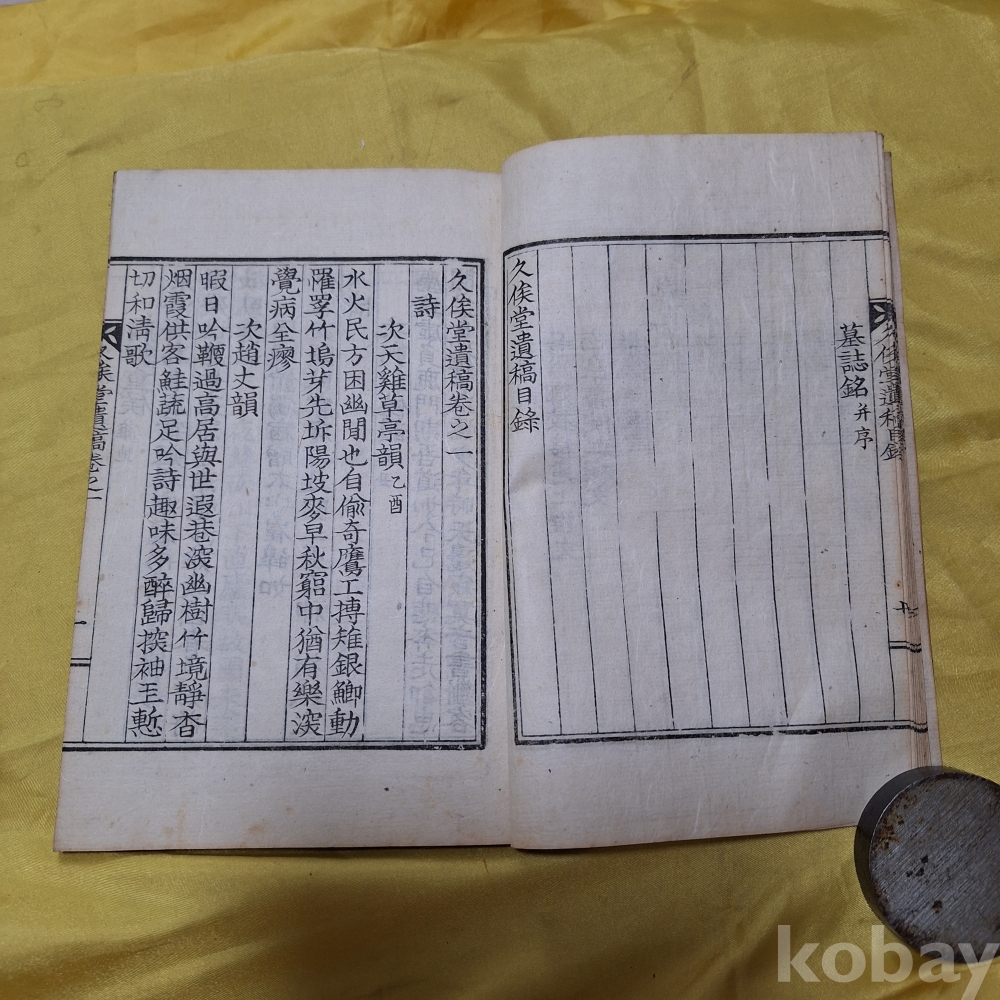 墓誌銘 并序
久俟堂遺稿目錄
久俟堂遺稿卷之一
詩
次天雞草亭韻 乙酉
水火民方困幽閒也自偷奇鷹工搏雉銀鯽動
罹罦竹塢芽先坼陽坡麥早秋窮中猶有樂深
覺病全瘳
次趙丈韻
暇日吟鞭過高居與世遐巷深幽樹竹境靜杏
烟霞供客鮭蔬足吟詩趣味多醉歸揆袖玉慙
切和淸歌
久俟堂遺稿卷之一
kobay